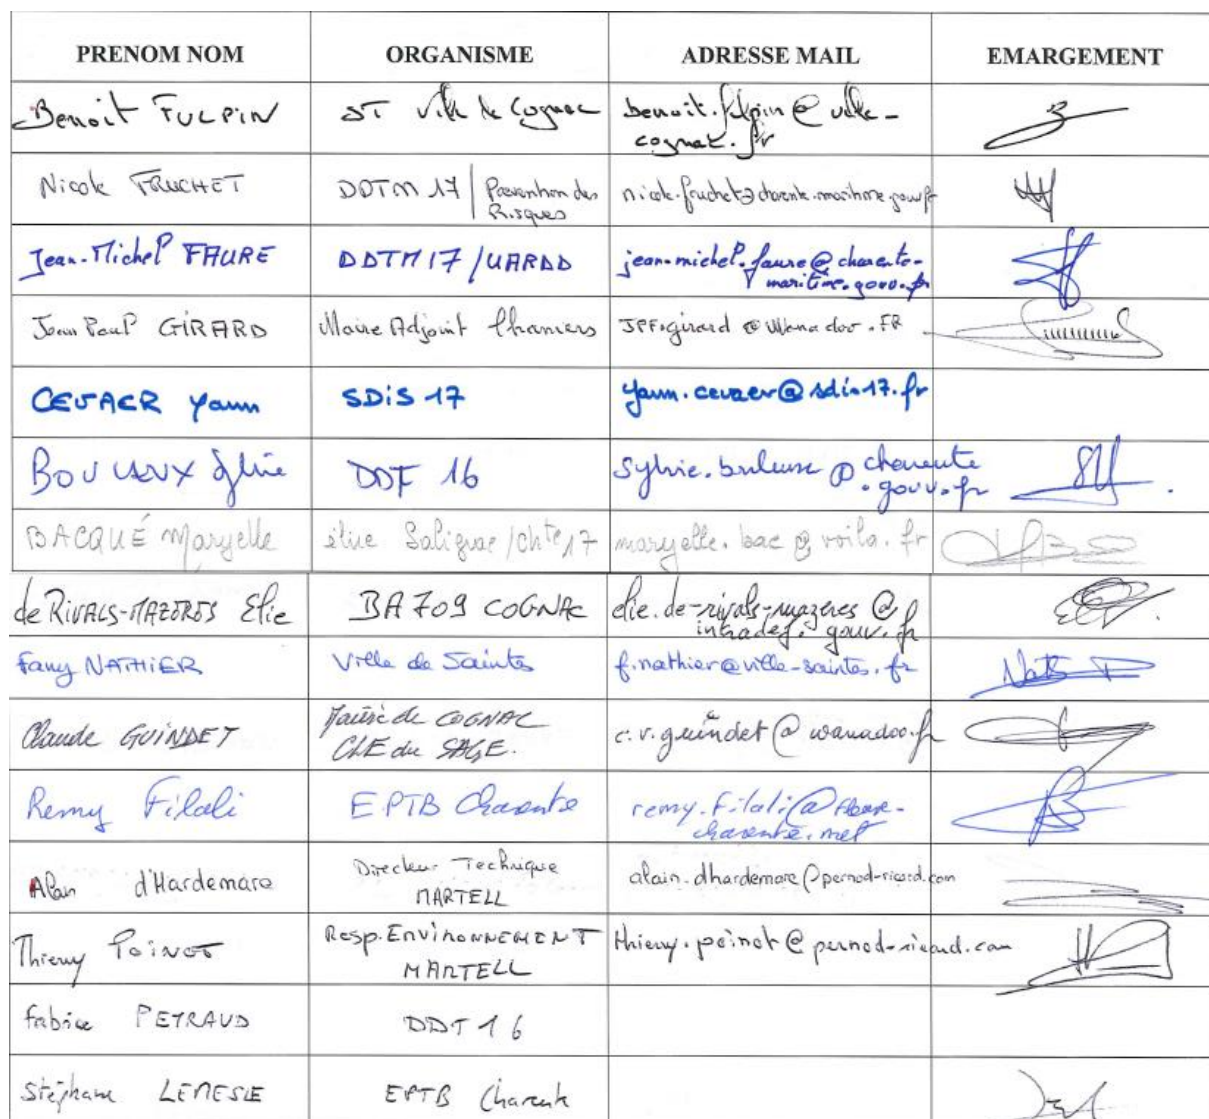 PRENOM NOM ORGANISME ADRESSE MAIL EMARGEMENT
Benoit FULPIN ST Ville de Cognac benoit.fulpin@ville-
cognac.fr
Nicole FRUCHET DDTM 17 / Prévention des nicole.fruchet@charente-maritime.gouv.fr
Risques
Jean-Michel FAURE DDTM 17 / UARDD jean-michel.faure@charente-
maritime.gouv.fr
Jean Paul GIRARD Maire Adjoint Chaniers JPF.girard@wanadoo.FR
CEVAER Yann SDIS 17 yann.cevaer@sdis17.fr
Sylvie DDT 16 sylvie. @ charente
.gouv.fr
BACQUÉ Maryelle élue Salignac / chte 17 maryelle.bac@voila.fr
de RIVALS-MAZERES Elie BA 709 COGNAC elie.de-rivals-mazeres@
intradef.gouv.fr
Fany NATHIER Ville de Saintes f.nathier@ville-saintes.fr
Claude GUINDET Mairie de COGNAC c.v.guindet@wanadoo.fr
CLE du SAGE.
Remy Filali EPTB Charente remy.filali@fleuve-
charente.net
Alain d'Hardemare Directeur Technique alain.dhardemare@pernod-ricard.com
MARTELL
Thierry POINOT Resp. ENVIRONNEMENT thierry.poinot@pernod-ricard.com
MARTELL
Fabrice PEYRAUD DDT 16
Stéphane LEMESLE EPTB Charente